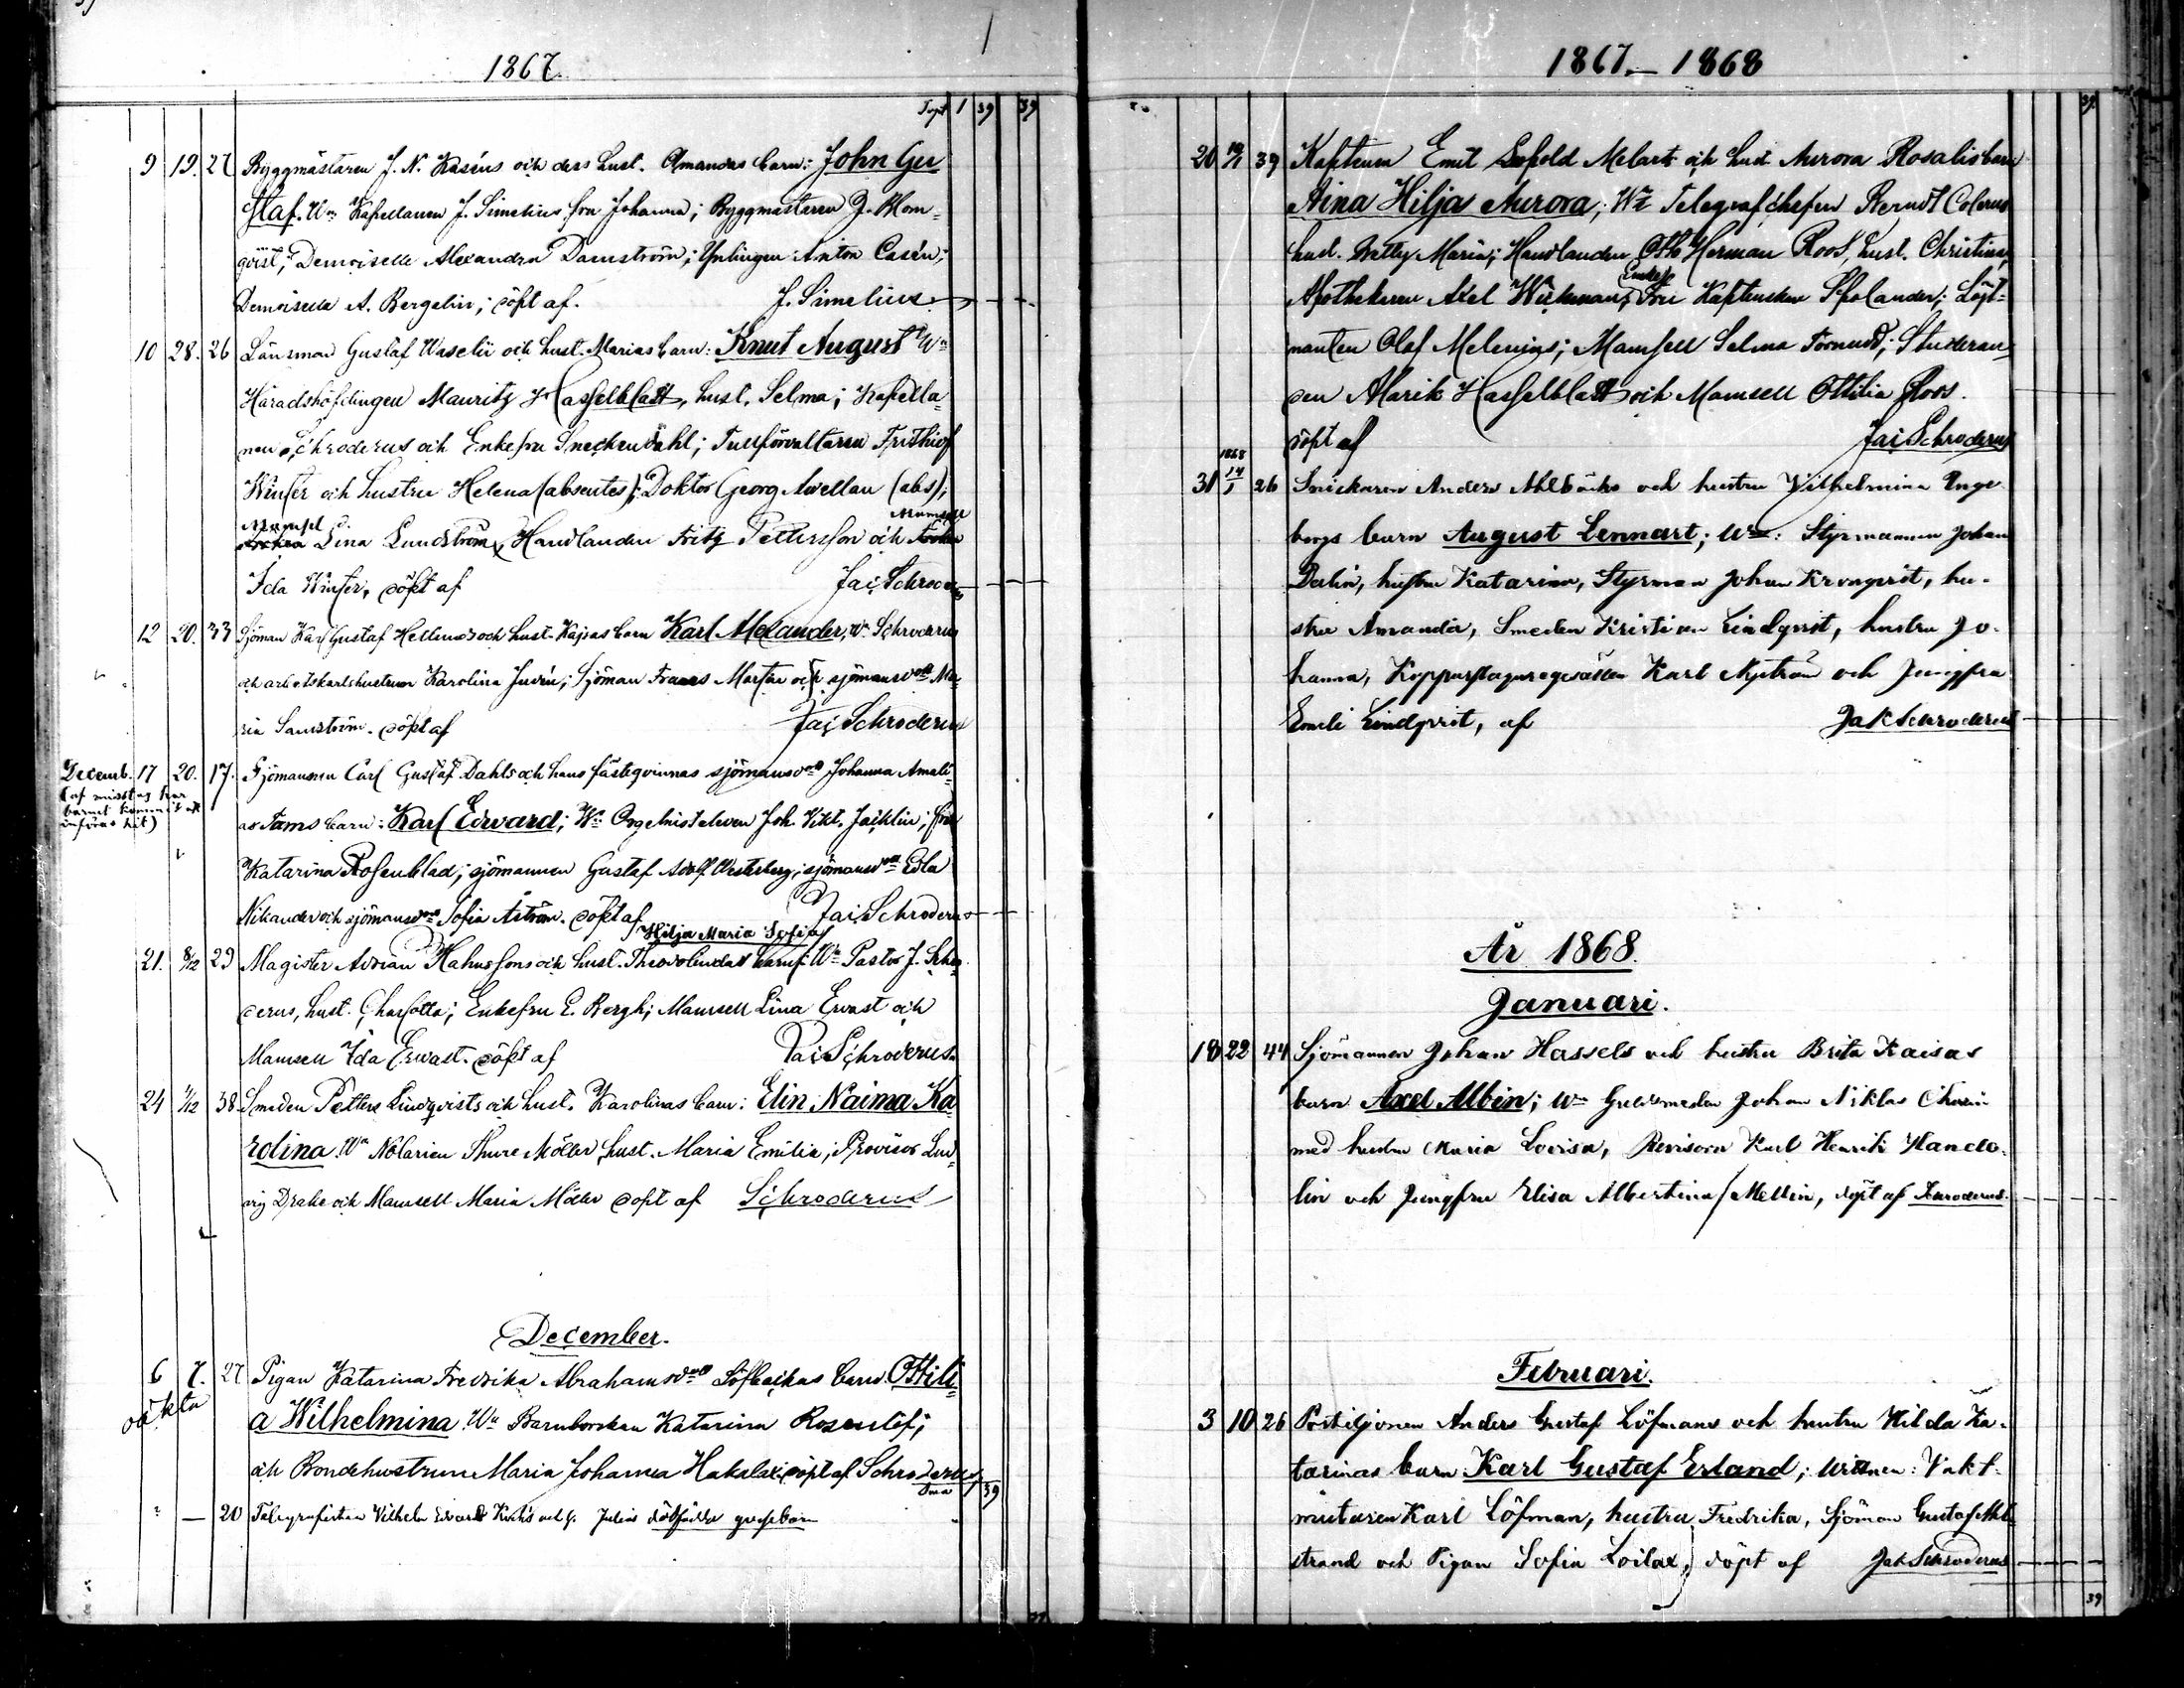 1867.
Transpt 1 39 39
9 19. 27 Byggmästaren J. N. Kaséns och dess hust. Amandas barn: John Gu
staf. Wn Kapellanen J. Simelius fru Johanna; Byggmästaren J. Blom=
qvist, Demoiselle Alexandra Damström; Ynlingen Anton Casén;
Demoiselle A. Bergelin; döpt af. J. Simelius
10 28. 26 Länsman Gustaf Waselii och hust. Marias barn: Knut August Wn
Häradshöfdingen Mauritz Hasselblatt, hust. Selma; Kapella=
nen Schroderus och Enkefru Sneckendahl; Tullförvaltaren Frithiof
Winter och hustru Helena (absentes); Doktor Georg Avellan (abs);
Mamsel Lina Lundström, Handlanden Fritz Pettersson och Mamsell
Ida Winter, döpt af Jac. Schroderus
12 20. 33 Sjöman Karl Gustaf Hellmans och hust. Kajsas barn Karl Alexander, Wn Schroderus
och arbetskarlshustrun Karolina Juvén; Sjöman Frans Martin och sjömansdr Ma=
ria Sandström. döpt af Jac. Schroderus
Decemb. 17 20. 17. Sjömannen Carl Gustaf Dahls och hans fästeqvinnas sjömansdr Johanna Amali=
(af misstag har
barnet kommit att
införas hit)
as Tams barn: Karl Edvard; Wn Orgelnisteleven Joh. Vikt. Jacklin, fru
Katarina Rosenblad; sjömannen Gustaf Adolf Westerberg; sjömansdr Edla
Nikander och sjömansdr Sofia Åström. döpt af Jac. Schroderus
Hilja Maria Sofia
21. 8/12 29 Magister Adrian Hahnssons och hust. Theodolindas barn: Wn Pastor J. Schro
derus, hust. Charlotta; Enkefru E. Bergh; Mamsell Lina Ervast och
Mamsell Ida Ervast. döpt af Jac. Schroderus.
24 1/12 38 Smeden Petter Lindqvists och hust. Karolinas barn: Elin Naima Ka
rolina. Wn Notarien Thure Möller, hust. Maria Emilia; Provisor Lud
vig Drake och Mamsell Maria Möller döpt af Schroderus
December.
6 7. 27 Pigan Katarina Fredrika Abrahamsdr Löfbackas barn Ottili=
oäkta
a Wilhelmina. Wn Barnborskan Katarina Rosenlöf;
och Bondehustrun Maria Johanna Hakala; döpt af Schroderus
Sma 39
" — 20 Telegrafisten Vilhelm Edvard och G. Julias dödfödde gossebarn
1867.—1868
39.
20 19/1 39 Kaptenen Emil Leopold Melart och hust Aurora Rosalis barn
Aina Hilja Aurora; Wn Telegrafchefen Berndt Colerus
hust. Milly Maria; Handlanden Otto Herman Roos, hust. Christina,
Apothekaren Axel Wickman; Enkefru Kaptenskan Spolander; Löjt=
nanten Olof Melenius; Mamsell Selma Törnudd; Studeran=
den Alarik Hasselblatt och Mamsell Ottilia Roos.
döpt af Jac. Schroderus
1868
31 14/1 26 Snickaren Anders Ahlbäcks och hustru Vilhelmina Inge
borgs barn August Lennart; Wn: Styrmannen Johan
Dalin, hustru Katarina, Styrman Johan Kronqvist, hu-
stru Amanda, Smeden Kristian Lindqvist, hustru Jo-
hanna, Kopparslagaregesällen Karl Nyström och Jungfru
Emili Lindqvist, af Jak Schroderus
År 1868.
Januari.
18 22 44 Sjömannen Johan Hassels och hustru Brita Kaisas
barn Axel Albin; Wn Guldsmeden Johan Niklas
med hustru Maria Lovisa, Revisorn Karl Henrik Hande-
lin och Jungfru Elisa Albertina Mellin, döpt af Schroderus.
Februari.
3 10 26 Postiljonen Anders Gustaf Löfmans och hustru Hilda Ka-
tarinas barn Karl Gustaf Erland; Wittnen: Vakt-
mästaren Karl Löfman, hustru Fredrika, Sjöman Gustaf Ahl-
strand och Pigan Sofia Loilax, döpt af Jak Schroderus
39